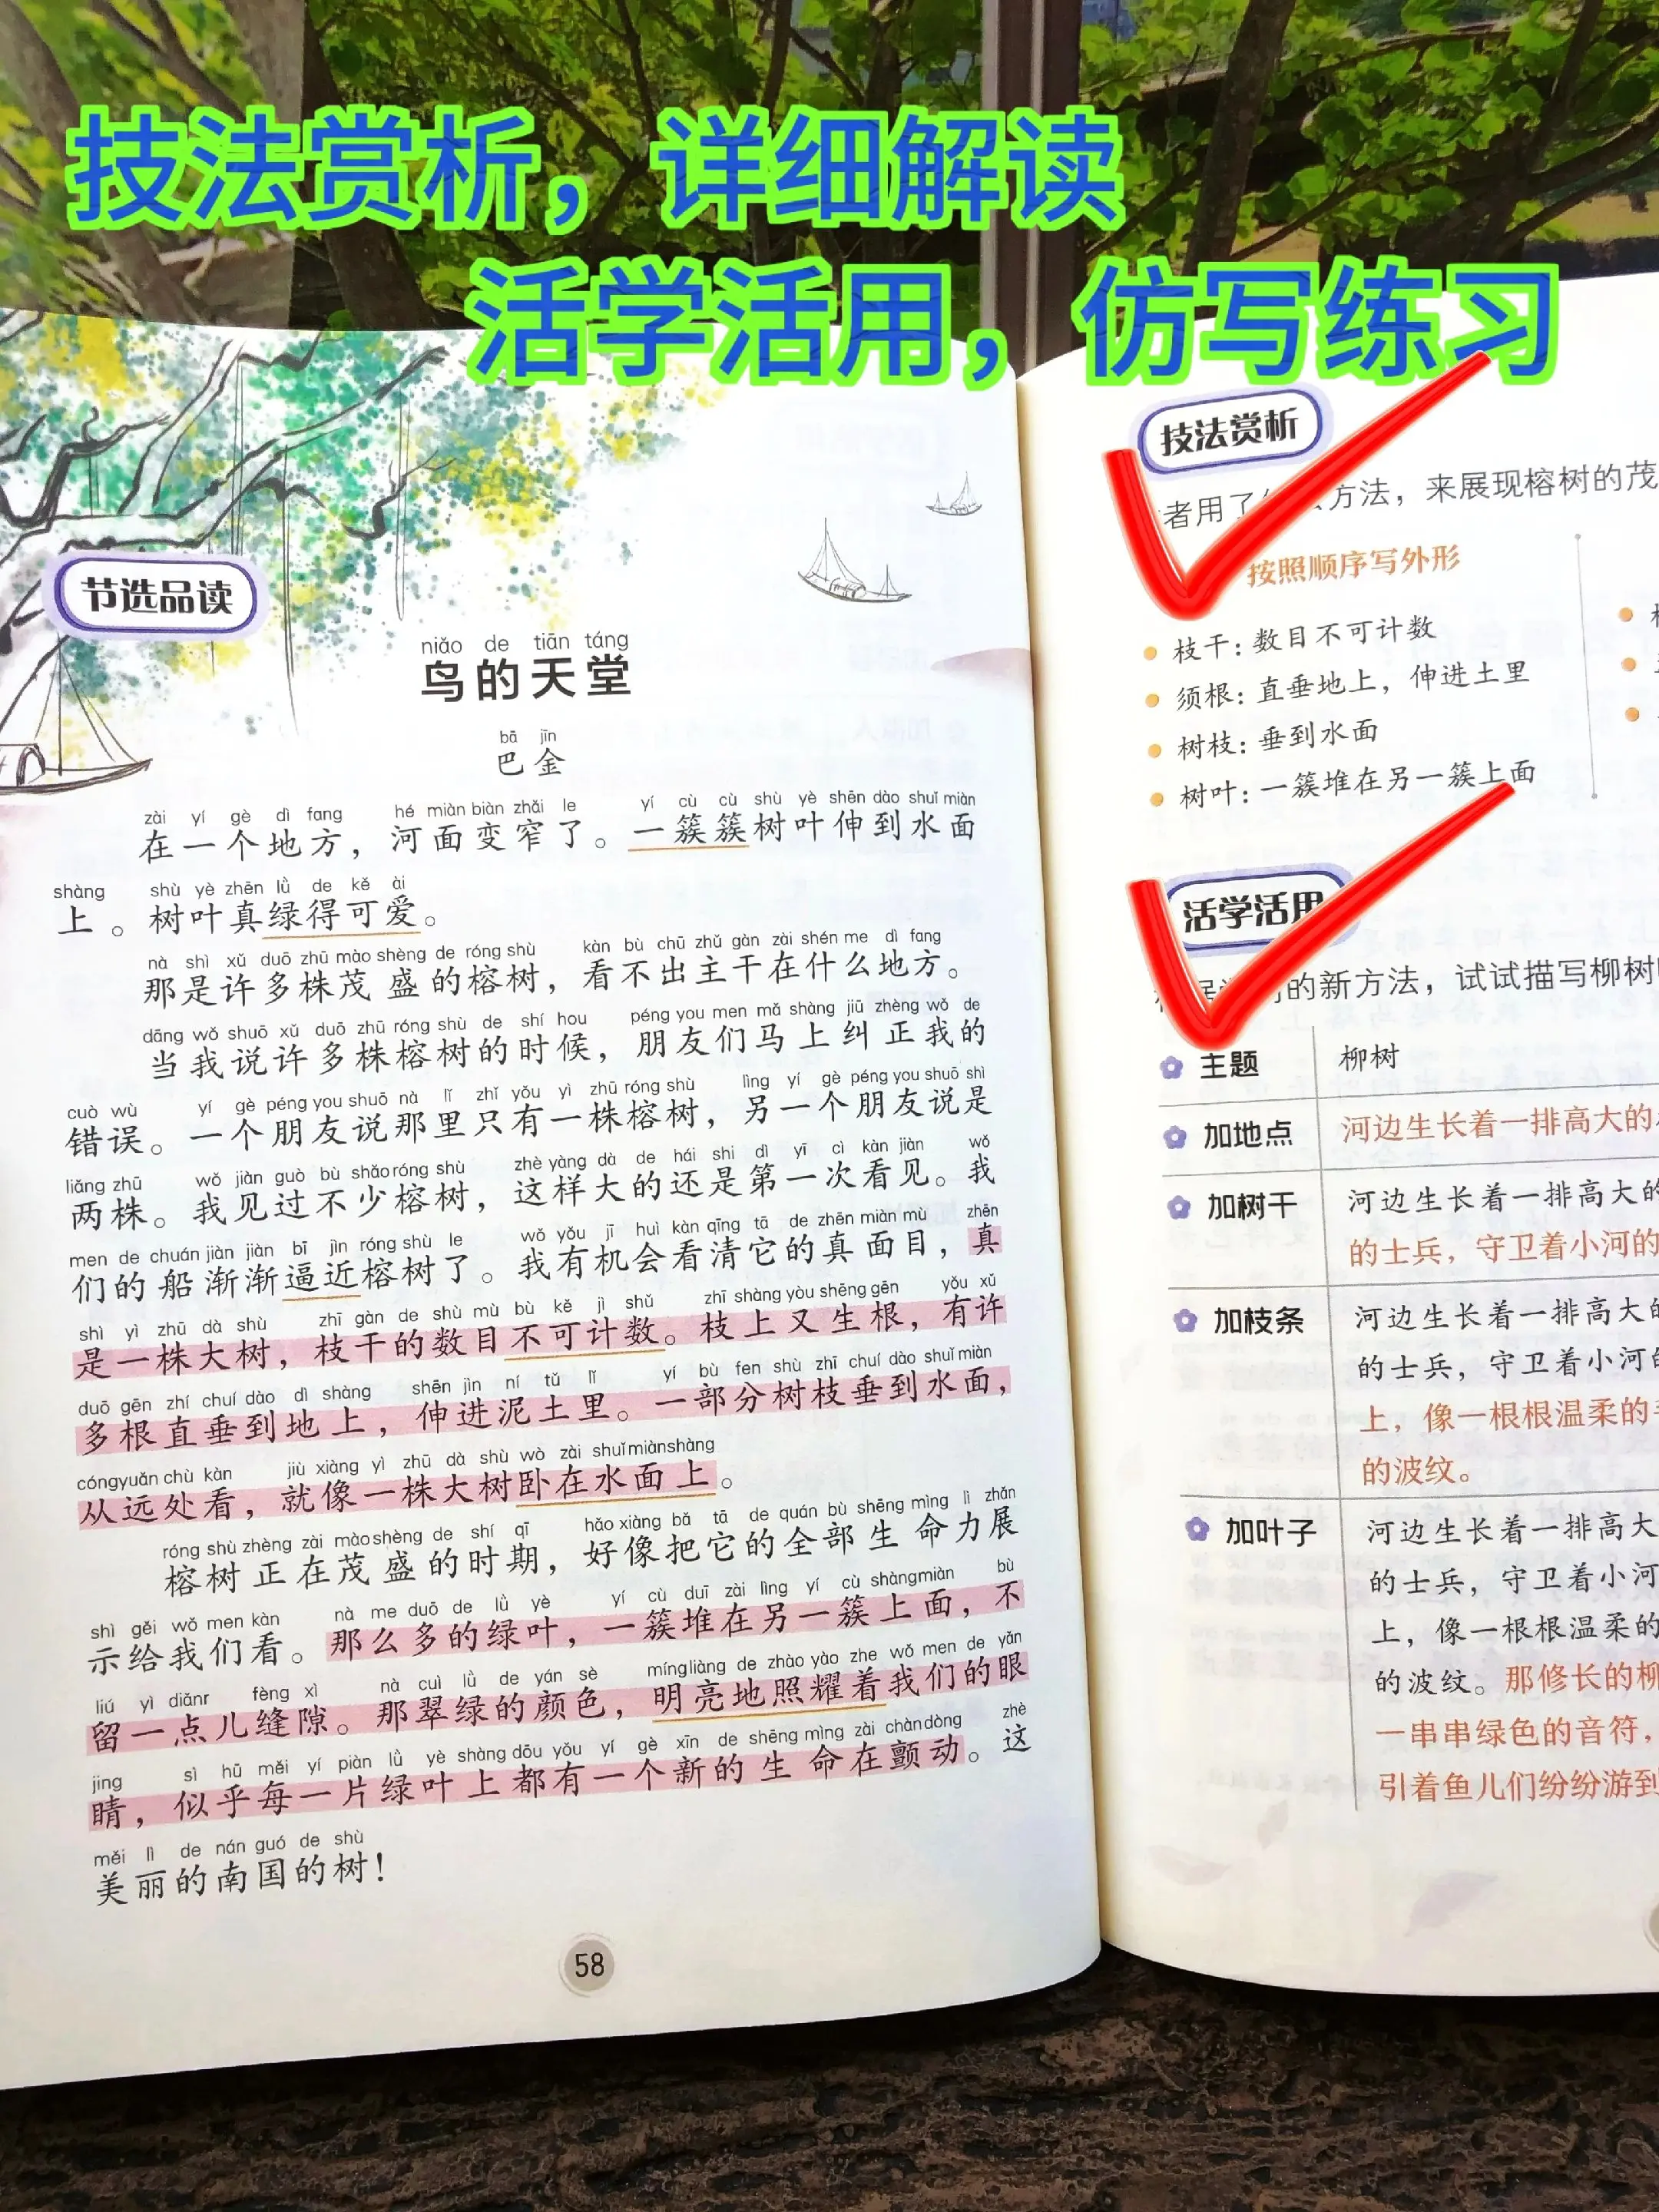 技法赏析，详细解读
活学活用，仿写练习
节选品读
niǎo de tiān táng
鸟的天堂
bā jīn
巴金
zài yí gè dì fang hé miàn biàn zhǎi le yí cù cù shù yè shēn dào shuǐ miàn
在一个地方，河面变窄了。一簇簇树叶伸到水面
shàng shù yè zhēn lǜ de kě ài
上。树叶真绿得可爱。
nà shì xǔ duō zhū mào shèng de róng shù kàn bù chū zhǔ gàn zài shén me dì fang
那是许多株茂盛的榕树，看不出主干在什么地方。
dāng wǒ shuō xǔ duō zhū róng shù de shí hou péng you men mǎ shàng jiū zhèng wǒ de
当我说许多株榕树的时候，朋友们马上纠正我的
cuò wù yí gè péng you shuō nà lǐ zhǐ yǒu yì zhū róng shù lìng yí gè péng you shuō shì
错误。一个朋友说那里只有一株榕树，另一个朋友说是
liǎng zhū wǒ jiàn guò bù shǎo róng shù zhè yàng dà de hái shi dì yī cì kàn jiàn wǒ
两株。我见过不少榕树，这样大的还是第一次看见。我
men de chuán jiàn jiàn bī jìn róng shù le wǒ yǒu jī huì kàn qīng tā de zhēn miàn mù zhēn
们的船渐渐逼近榕树了。我有机会看清它的真面目，真
shì yì zhū dà shù zhī gàn de shù mù bù kě jì shǔ zhī shàng yòu shēng gēn yǒu xǔ
是一株大树，枝干的数目不可计数。枝上又生根，有许
duō gēn zhí chuí dào dì shàng shēn jìn ní tǔ lǐ yí bù fen shù zhī chuí dào shuǐ miàn
多根直垂到地上，伸进泥土里。一部分树枝垂到水面，
cóng yuǎn chù kàn jiù xiàng yì zhū dà shù wò zài shuǐ miàn shàng
从远处看，就像一株大树卧在水面上。
róng shù zhèng zài mào shèng de shí qī hǎo xiàng bǎ tā de quán bù shēng mìng lì zhǎn
榕树正在茂盛的时期，好像把它的全部生命力展
shì gěi wǒ men kàn nà me duō de lǜ yè yí cù duī zài lìng yí cù shàng miàn bù
示给我们看。那么多的绿叶，一簇堆在另一簇上面，不
liú yì diǎnr fèng xì nà cuì lǜ de yán sè míng liàng de zhào yào zhe wǒ men de yǎn
留一点儿缝隙。那翠绿的颜色，明亮地照耀着我们的眼
jing sì hū měi yí piàn lǜ yè shàng dōu yǒu yí gè xīn de shēng mìng zài chàn dòng zhè
睛，似乎每一片绿叶上都有一个新的生命在颤动。这
měi lì de nán guó de shù
美丽的南国的树！
58
技法赏析
者用了 方法，来展现榕树的茂
按照顺序写外形
枝干：数目不可计数
须根：直垂地上，伸进土里
树枝：垂到水面
树叶：一簇堆在另一簇上面
活学活用
的新方法，试试描写柳树
主题 柳树
加地点 河边生长着一排高大的
加树干 河边生长着一排高大的
的士兵，守卫着小河的
加枝条 河边生长着一排高大的
的士兵，守卫着小河的
上，像一根根温柔的
的波纹。
加叶子 河边生长着一排高大
的士兵，守卫着小河
上，像一根根温柔的
的波纹。那修长的柳
一串串绿色的音符，
引着鱼儿们纷纷游到